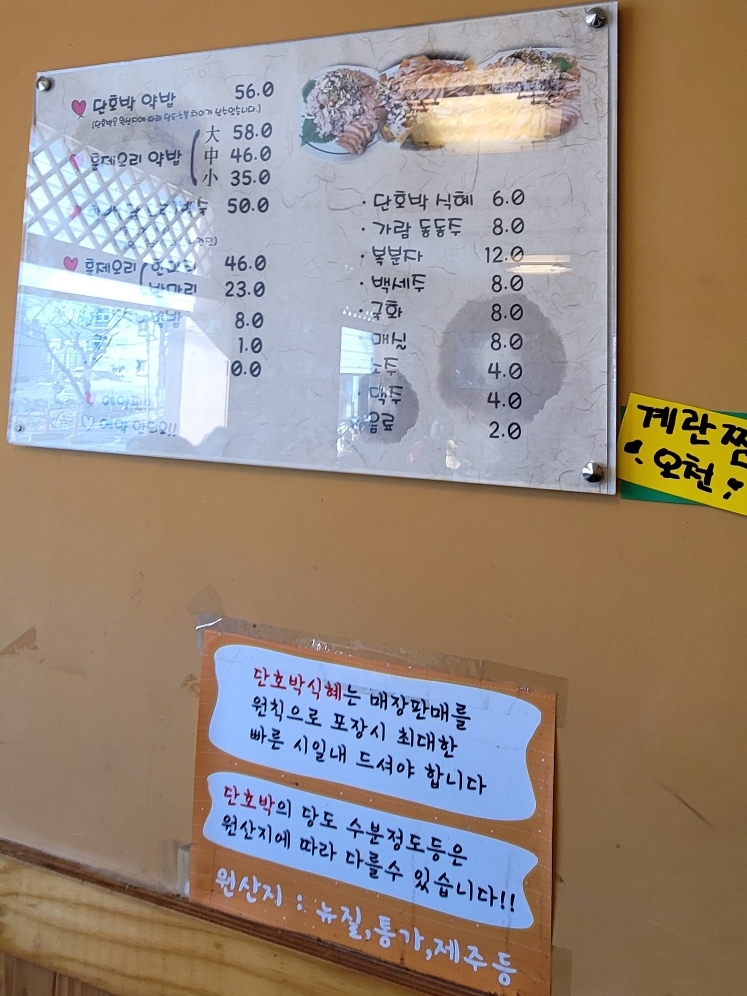 단호박 약밥 56.0
훈제오리 약밥 大 58.0
中 46.0
小 35.0
50.0
훈제오리 한마리 46.0
반마리 23.0
8.0
1.0
· 단호박 식혜 6.0
· 가람 동동주 8.0
· 복분자 12.0
· 백세주 8.0
· 국화 8.0
매실 8.0
소주 4.0
· 맥주 4.0
음료 2.0
계란찜
오천
단호박식혜는 매장판매를
원칙으로 포장시 최대한
빠른 시일내 드셔야 합니다
단호박의 당도 수분정도등은
원산지에 따라 다를수 있습니다!!
원산지 : 뉴질,통가,제주등